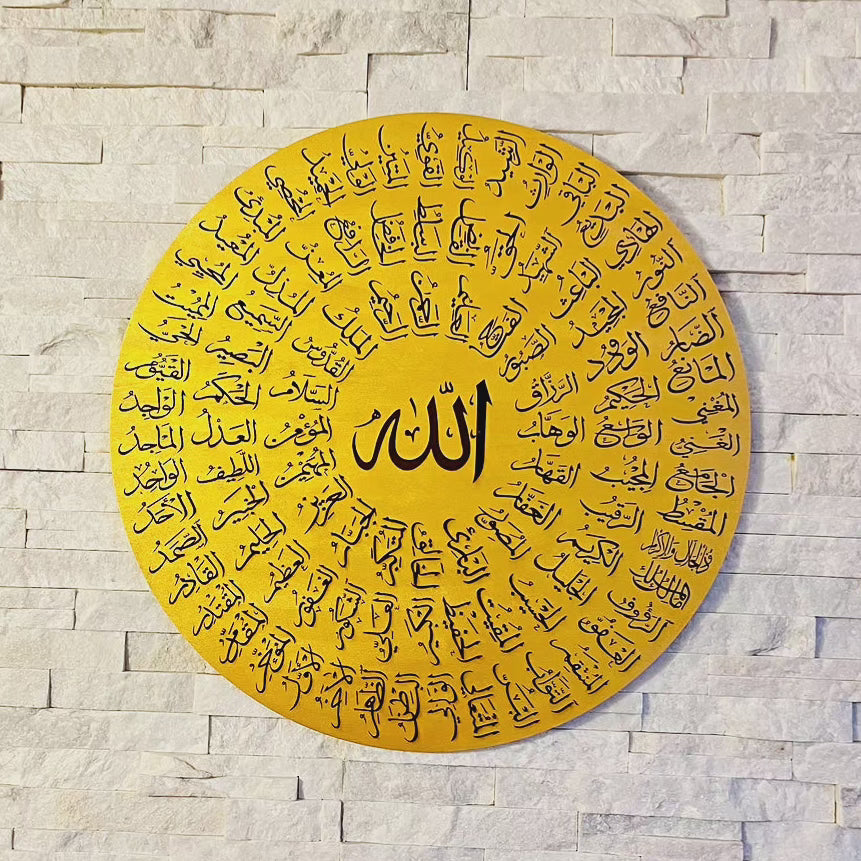 الله
الرحمن
الرحيم
الملك
القدوس
السلام
المؤمن
المهيمن
العزيز
الجبار
المتكبر
الخالق
البارئ
المصور
الغفار
القهار
الوهاب
الرزاق
الصبور
الفتاح
القابض
الباسط
الخافض
الرافع
المعز
المذل
السميع
البصير
الحكم
العدل
اللطيف
الخبير
الحليم
العظيم
الغفور
الشكور
العلي
الكبير
الحفيظ
المقيت
الحسيب
الجليل
الكريم
الرقيب
المجيب
الواسع
الحكيم
الودود
المجيد
الباعث
الشهيد
الحق
الوكيل
القوي
المتين
الولي
الحميد
المحصي
المبدئ
المعيد
المحيي
المميت
الحي
القيوم
الواجد
الماجد
الواحد
الأحد
الصمد
القادر
المقتدر
المقدم
المؤخر
الأول
الآخر
الظاهر
الباطن
الوالي
المتعالي
البر
التواب
المنتقم
العفو
الرؤوف
مالك الملك
ذو الجلال والإكرام
المقسط
الجامع
الغني
المغني
المانع
الضار
النافع
النور
الهادي
البديع
الباقي
الوارث
الرشيد